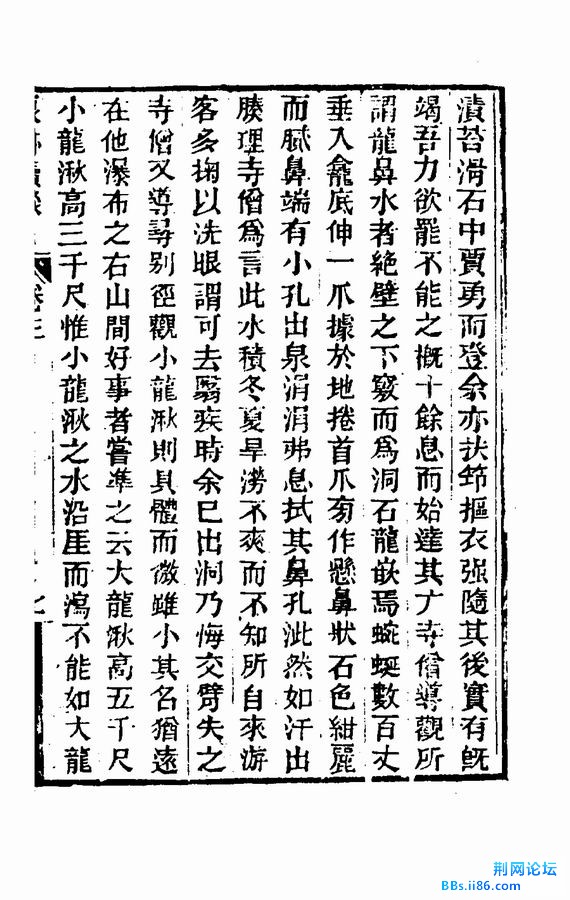 漬苔滑石中賈勇而登余亦扶筇摳衣強隨其後實有旣
竭吾力欲罷不能之概十餘息而始達其方寺僧導觀所
謂龍鼻水者絶壁之下竅而爲洞石龍嵌焉蜿蜒數百丈
垂入龕底伸一爪據於地捲首爪旁作懸鼻狀石色紺麗
而膩鼻端有小孔出泉涓涓弗息拭其鼻孔泚然如汗出
腠理寺僧爲言此水積冬夏旱澇不爽而不知所自來游
客多掬以洗眼謂可去翳疾時余已出洞乃悔交臂失之
寺僧又導尋别徑觀小龍湫則具體而微雖小其名猶遠
在他瀑布之右山間好事者嘗準之云大龍湫高五千尺
小龍湫高三千尺惟小龍湫之水沿厓而瀉不能如大龍
卷三
荆网论坛
BBs.ii86.com